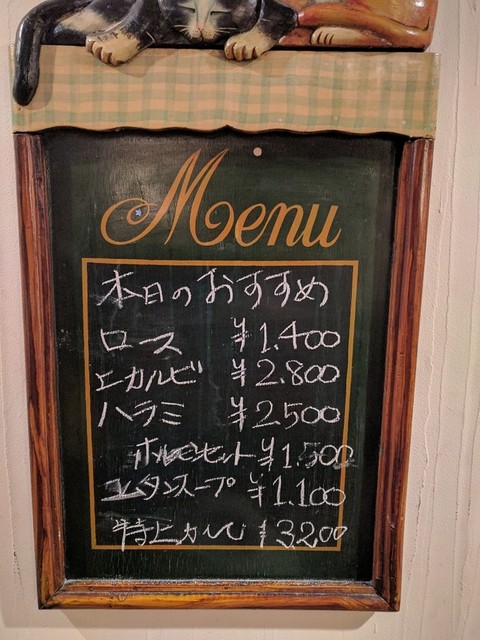 Menu
本日のおすすめ
ロース ¥1.400
上カルビ ¥2.800
ハラミ ¥2500
ホルモンセット ¥1.500
タンスープ ¥1.100
特上カルビ ¥3200